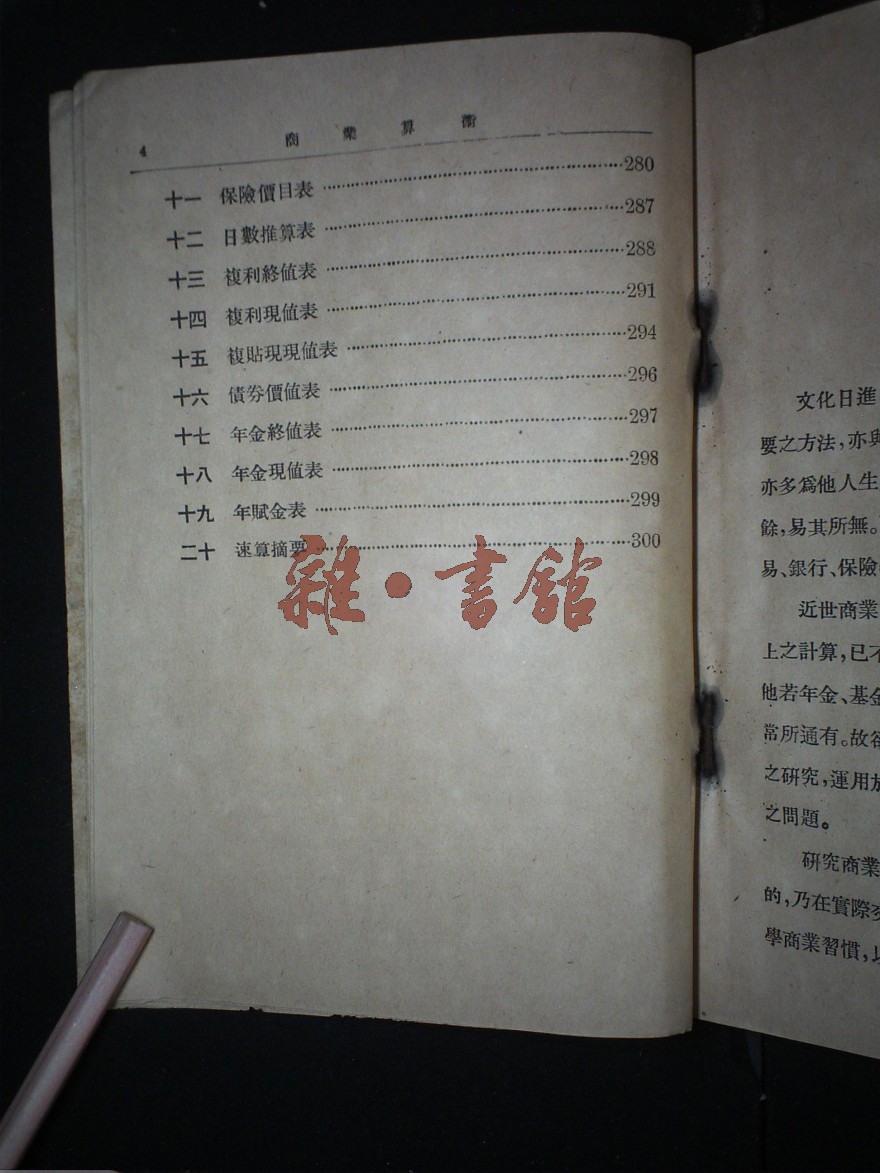 4 商業算術
十一 保險價目表 280
十二 日數推算表 287
十三 複利終値表 288
十四 複利現値表 291
十五 複貼現現値表 294
十六 債劵價値表 296
十七 年金終値表 297
十八 年金現値表 298
十九 年賦金表 299
二十 速算摘要 300
雜·書館
文化日進
要之方法，亦與
亦多爲他人生
餘，易其所無。
易、銀行、保險
近世商業
上之計算，已不
他若年金、基金
常所通有。故欲
之硏究，運用於
之問題。
硏究商業
的，乃在實際
學商業習慣，以